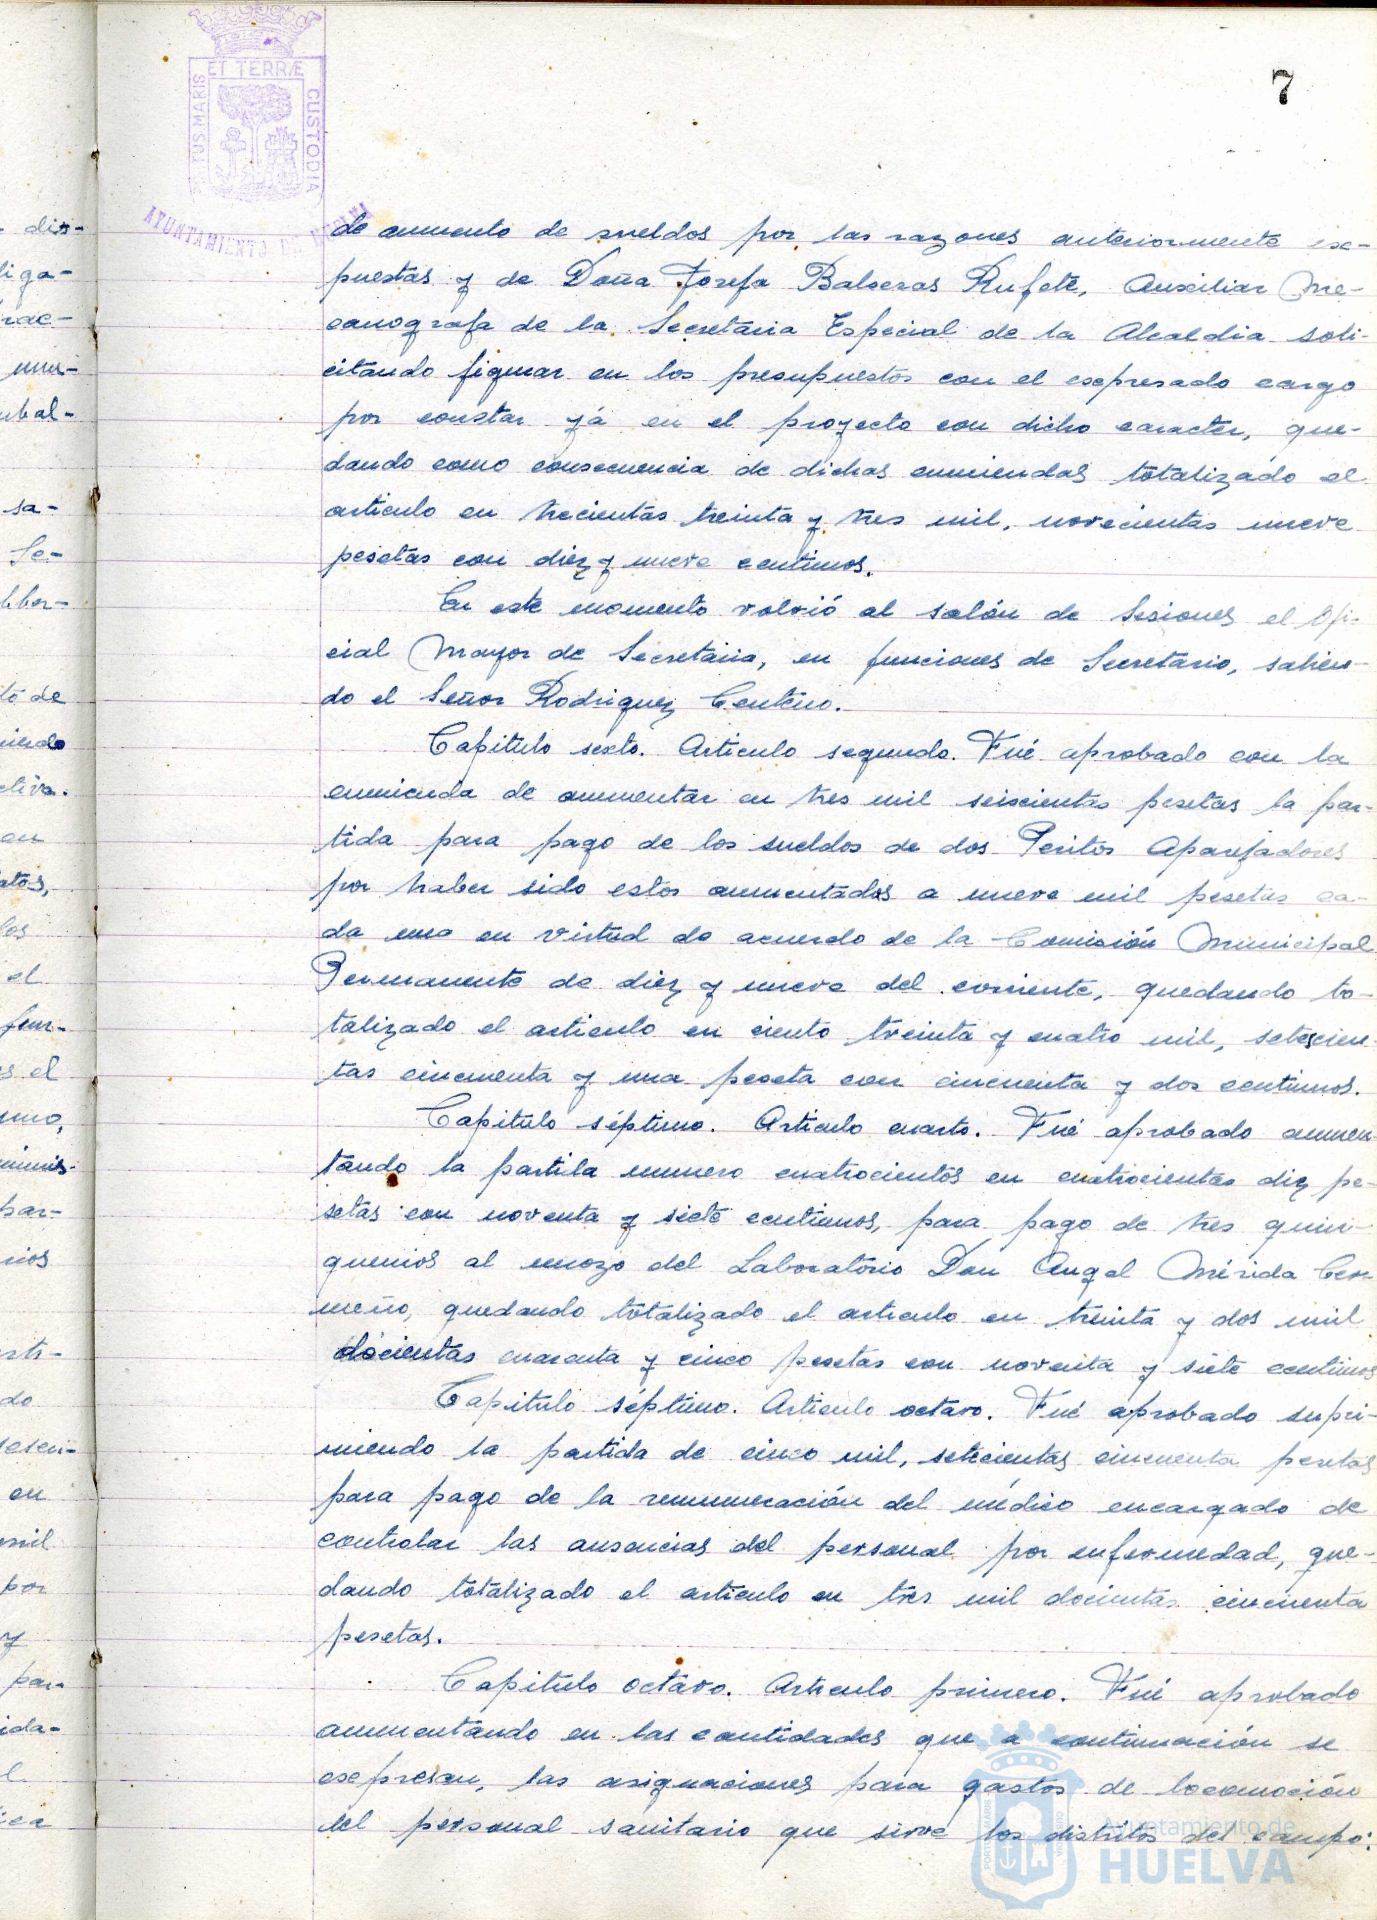 7
PORTUS MARIS ET TERRÆ CUSTODIA
AYUNTAMIENTO DE HUELVA
de aumento de sueldos por las razones anteriormente ex-
puestas y de Doña Josefa Balseras Rufete, Auxiliar Me-
canografa de la Secretaria Especial de la Alcaldia soli-
citando figurar en los presupuestos con el expresado cargo
por constar yá en el proyecto con dicho caracter, que-
dando como consecuencia de dichas enmiendas totalizado el
articulo en trecientas treinta y tres mil, novecientas nueve
pesetas con diez y nueve centimos.
En este momento volvió al salón de Sesiones el Ofi-
cial Mayor de Secretaria, en funciones de Secretario, salien-
do el Señor Rodriguez Centeno.
Capitulo sexto. Articulo segundo. Fué aprobado con la
enmienda de aumentar en tres mil seiscientas pesetas la par-
tida para pago de los sueldos de dos Peritos Aparejadores
por haber sido estos aumentados a nueve mil pesetas ca-
da uno en virtud de acuerdo de la Comisión Municipal
Permanente de diez y nueve del corriente, quedando to-
talizado el articulo en ciento treinta y cuatro mil, setecien-
tas cincuenta y una peseta con cincuenta y dos centimos.
Capitulo séptimo. Articulo cuarto. Fué aprobado aumen-
tando la partila numero cuatrocientos en cuatrocientas diez pe-
setas con noventa y siete centimos, para pago de tres quin-
quenios al mozo del Laboratorio Don Angel Mérida Cer-
meño, quedando totalizado el articulo en treinta y dos mil
docientas cuarenta y cinco pesetas con noventa y siete centimos
Capitulo séptimo. Articulo octavo. Fué aprobado supri-
miendo la partida de cinco mil, setecientas cincuenta pesetas
para pago de la remuneración del médico encargado de
controlar las ausencias del personal por enfermedad, que-
dando totalizado el articulo en tres mil docientas cincuenta
pesetas.
Capitulo octavo. Articulo primero. Fué aprobado
aumentando en las cantidades que a continuación se
expresan, las asignaciones para gastos de locomoción
del personal sanitario que sirve los distritos del campo:
Ayuntamiento de
HUELVA